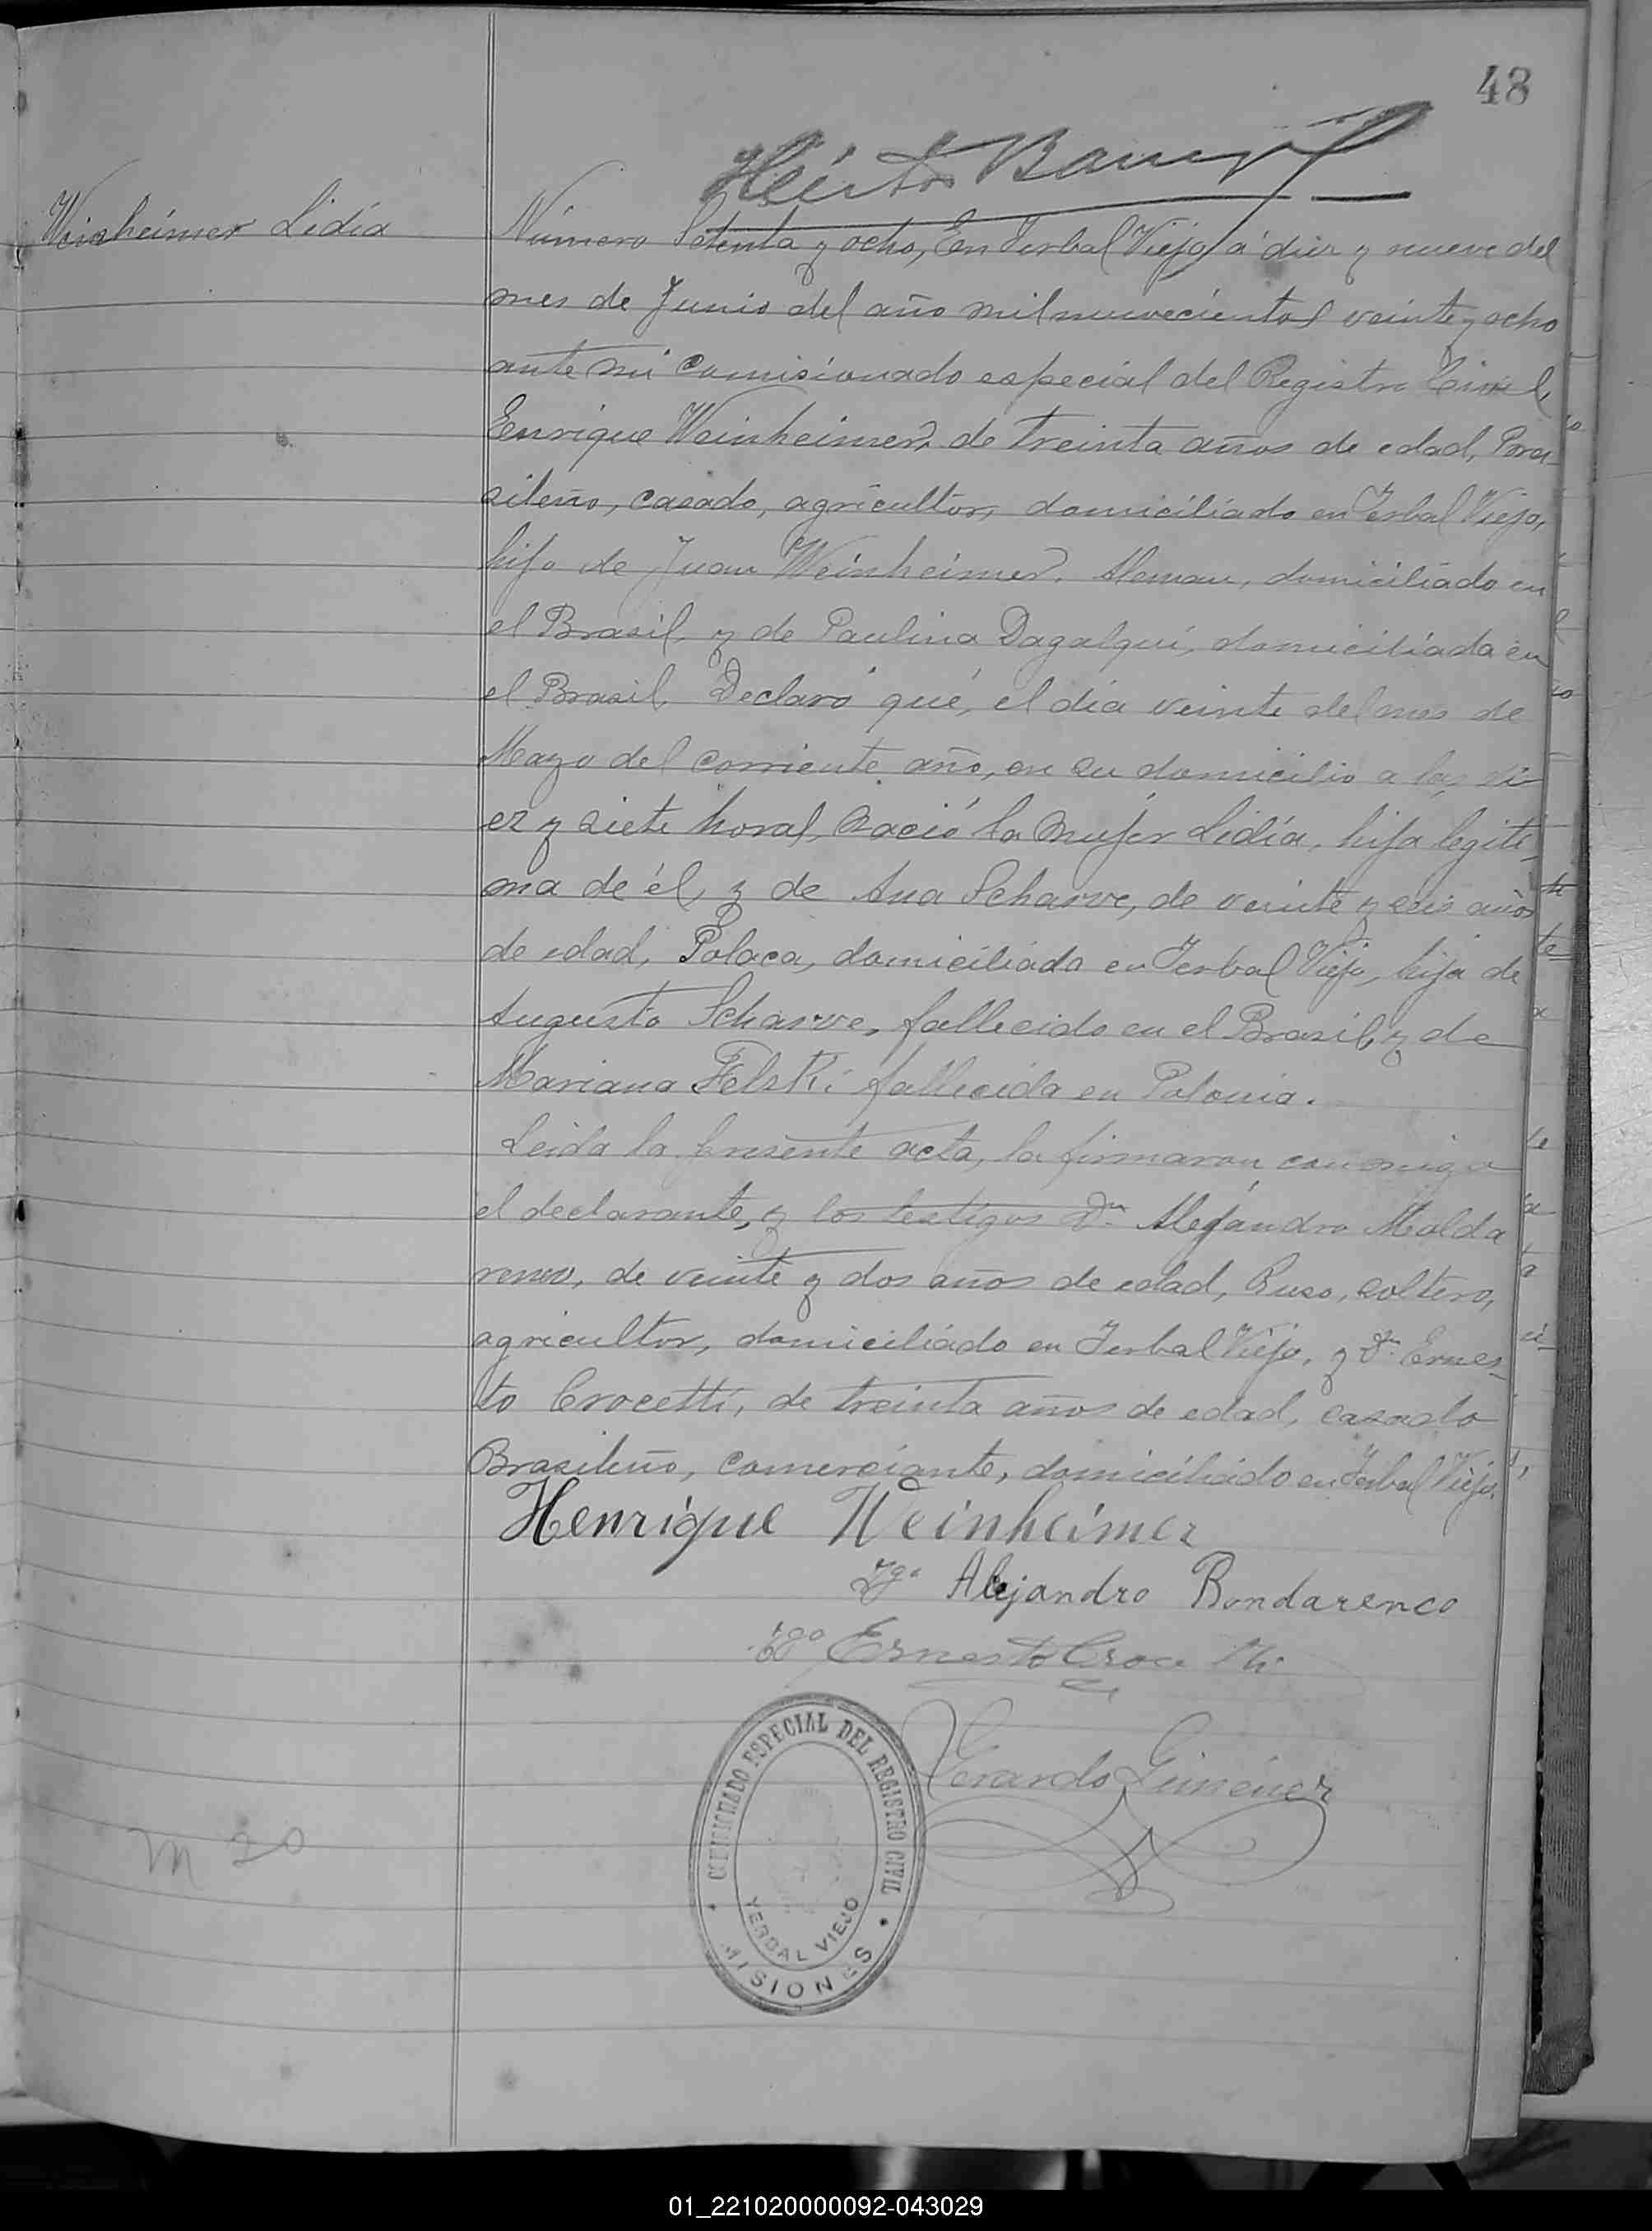 48
Weinheimer Lidia
Número Setenta y ocho, En Yerbal Viejo a diez y nueve del
mes de Junio del año mil nuevecientos veinte y ocho
ante mi comisionado especial del Registro Civil,
Enrique Weinheimer, de treinta años de edad, Bra-
sileño, casado, agricultor, domiciliado en Yerbal Viejo,
hijo de Juan Weinheimer, Aleman, domiciliado en
el Brasil, y de Paulina Dagalqui, domiciliada en
el Brasil, Declaró qué, el día veinte del mes de
Mayo del corriente año, en su domicilio a las di-
ez y siete horas, nació la mujer Lidia, hija legiti-
ma de él, y de Ana Scharve, de veinte y seis años
de edad, Polaca, domiciliada en Yerbal Viejo, hija de
Augusto Scharve, fallecido en el Brasil, y de
Mariana Felski fallecida en Polonia.
Leida la presente acta, la firmaron conmigo
el declarante, y los testigos Dn Alejandro Molda
renco, de veinte y dos años de edad, Ruso, soltero,
agricultor, domiciliado en Yerbal Viejo, y Dn Ernes-
to Crocetti, de treinta años de edad, casado
Brasileño, comerciante, domiciliado en Yerbal Viejo.
Henrique Weinheimer
Tgo Alejandro Bondarenco
tgo Ernesto Crocetti
Gerardo Giménez
COMISIONADO ESPECIAL DEL REGISTRO CIVIL
YERBAL VIEJO
MISIONES
m 20
01_221020000092-043029